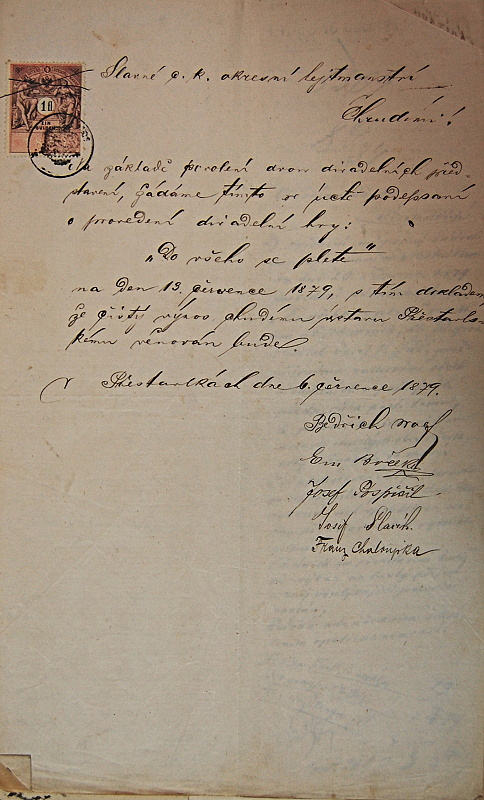 1 fl
Slavné c. k. okresní hejtmanství
Chrudimi!
Na základě povolení dvou divadelních před-
stavení, žádáme tímto v úctě podepsaní
o provedení divadelní hry:
„Do všeho se plete"
na den 13. července 1879, s tím dokladem
že čistý výnos chudému ústavu Přestavlc-
kému věnován bude.
Přestavlkách dne 6. července 1879.
Bedřich
Em
Josef Pospíšil
Josef Slavík.
Franz Chaloupka